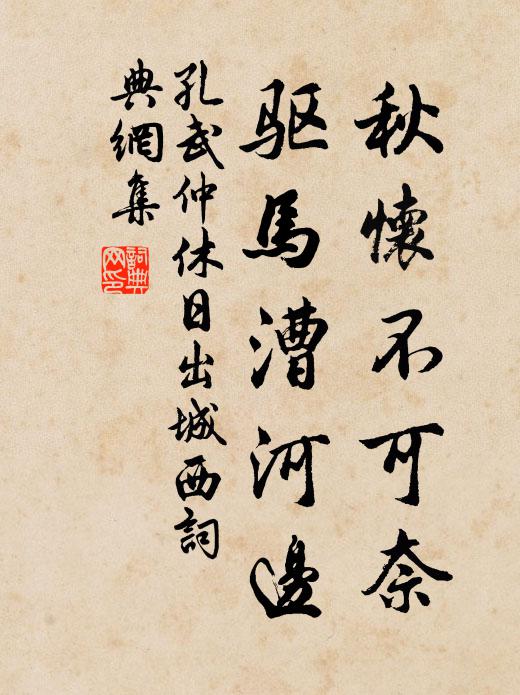 秋懷不可奈
驱馬漕河邊
孔武仲休日出城西詞
典網集
詞典網印